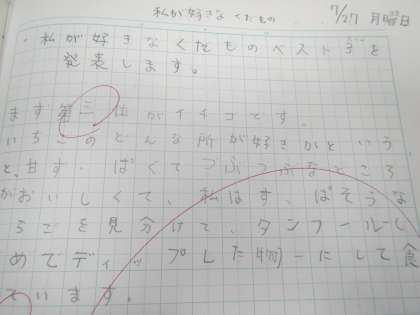 私が好きなくだもの 7/27 月曜日
・私が好きなくだものベスト3を
発表します。
まず第三位がイチゴです。
いちごのどんな所が好きかという
と、甘ずっぱくてつぶつぶなところ
がおいしくて、私はすっぱそうな
ちごを見分けて、
めてディップした にして食
ています。